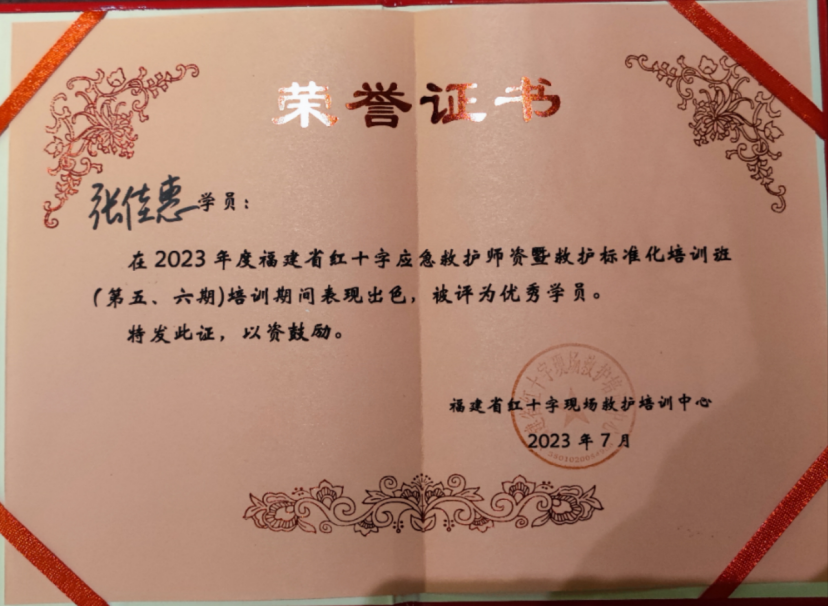 荣誉证书
张佳惠学员：
在2023年度福建省红十字应急救护师资暨救护标准化培训班
(第五、六期)培训期间表现出色，被评为优秀学员。
特发此证，以资鼓励。
福建省红十字现场救护培训中心
2023年7月